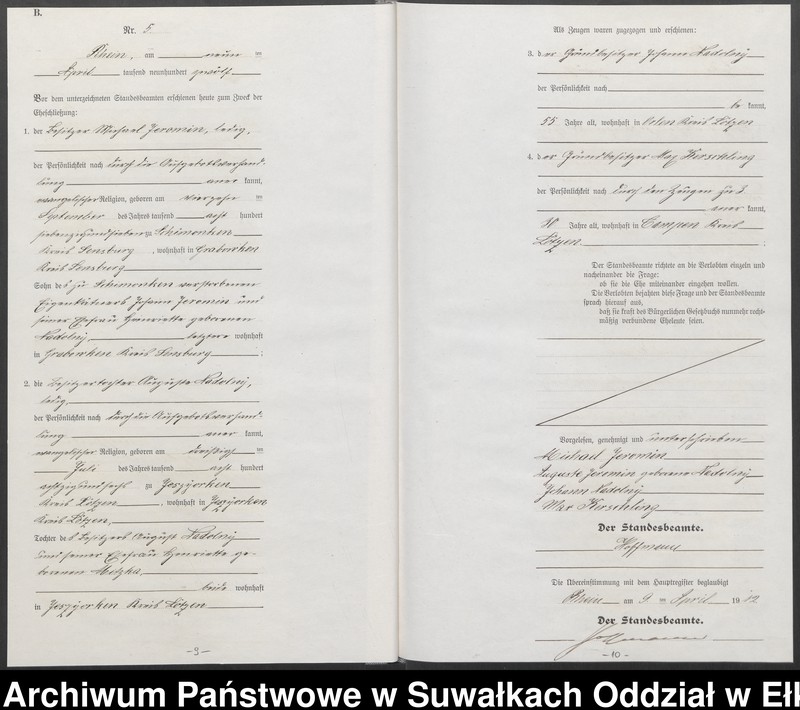 B.
Nr. 5
Rhein, am neun ten
April tausend neunhundert zwölf
Vor dem unterzeichneten Standesbeamten erschienen heute zum Zweck der
Eheschließung:
1. der Besitzer Michael Jeromin, ledig,
der Persönlichkeit nach durch die Aufgebotsverhand-
lung aner kannt,
evangelischer Religion, geboren am vierzehn ten
September des Jahres tausend acht hundert
siebenzigundsieben zu Schimonken
Kreis Sensburg, wohnhaft in Grabowken
Kreis Sensburg
Sohn des zu Schimonken verstorbenen
Eigenkätners Johann Jeromin und
seiner Ehefrau Henriette geborenen
Nadolny, letztere wohnhaft
in Grabowken Kreis Sensburg ;
2. die Besitzertochter Auguste Nadolny,
ledig
der Persönlichkeit nach durch die Aufgebotsverhand-
lung aner kannt,
evangelischer Religion, geboren am dreißigst en
Juli des Jahres tausend acht hundert
achtzigundsechs zu Jesziorken
Kreis Lötzen, wohnhaft in Jesziorken
Kreis Lötzen,
Tochter des Besitzers August Nadolny
und seiner Ehefrau Henriette ge-
borenen
beide wohnhaft
in Jesziorken Kreis Lötzen
- 9 -
Als Zeugen waren zugezogen und erschienen:
3. der Grundbesitzer Johann Nadolny
der Persönlichkeit nach
be kannt,
55 Jahre alt, wohnhaft in Orlen Kreis Lötzen
4. der Grundbesitzer Max Kerschling
der Persönlichkeit nach durch den Zeugen zu 3
aner kannt,
Jahre alt, wohnhaft in Campen Kreis
Lötzen ;
Der Standesbeamte richtete an die Verlobten einzeln und
nacheinander die Frage:
ob sie die Ehe miteinander eingehen wollen.
Die Verlobten bejahten diese Frage und der Standesbeamte
sprach hierauf aus,
daß sie kraft des Bürgerlichen Gesetzbuchs nunmehr recht-
mäßig verbundene Eheleute seien.
Vorgelesen, genehmigt und unterschrieben
Michael Jeromin
Auguste Jeromin geborene Nadolny
Johann Nadolny
Max Kerschling
Der Standesbeamte.
Hoffmann
Die Übereinstimmung mit dem Hauptregister beglaubigt
Rhein am 9 ten April 1912
Der Standesbeamte.
Hoffmann
- 10 -
Archiwum Państwowe w Suwałkach Oddział w Ełk